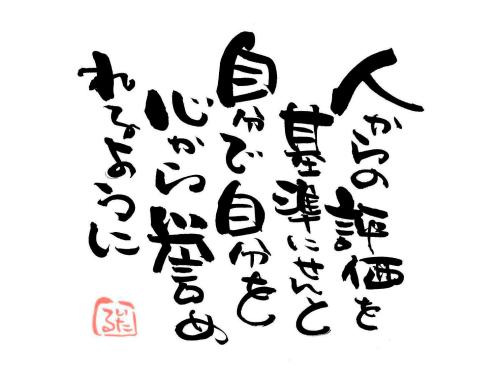 人からの評価を
基準にせんと
自分で自分を
心から誉め
れるように